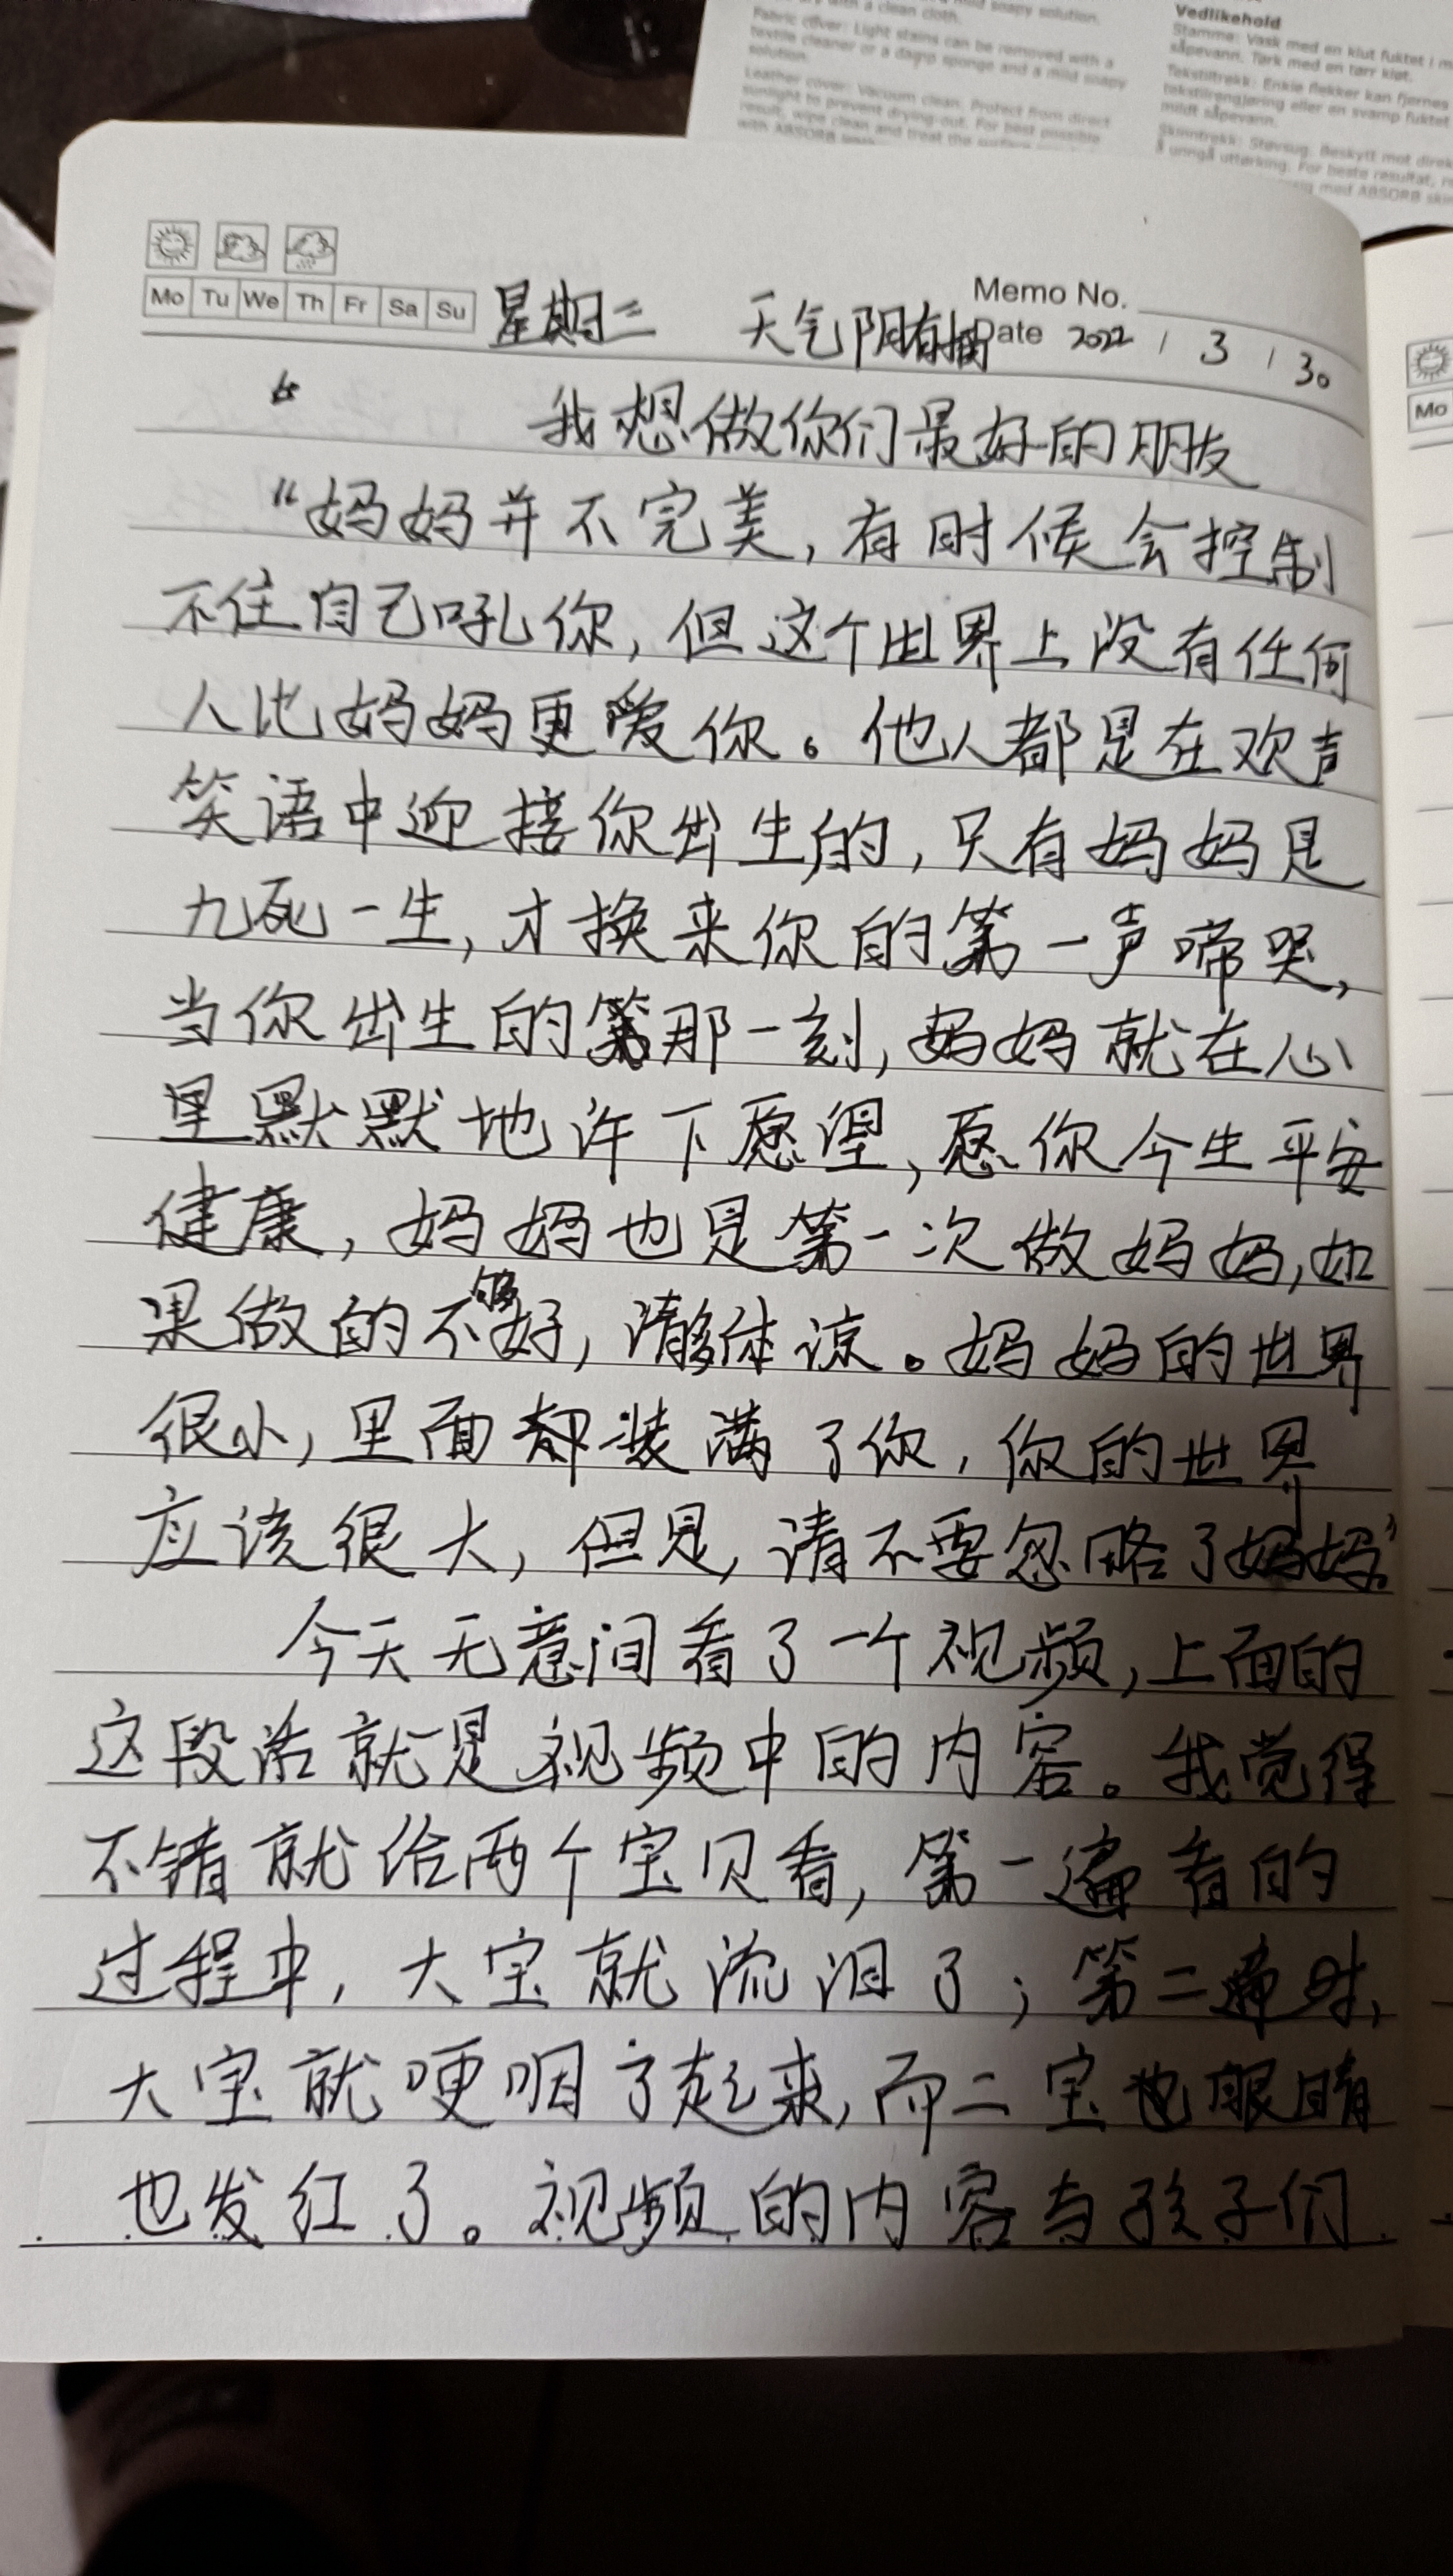 dry with a clean cloth.
mild soapy solution.
Fabric cover: Light stains can be removed with a
textile cleaner or a damp sponge and a mild soapy
solution.
Leather cover: Vacuum clean. Protect from direct
sunlight to prevent drying-out. For best possible
result, wipe clean and treat the surface
with ABSORB
Vedlikehold
Stamme: Vask med en klut fuktet i m
såpevann. Tørk med en tørr klut.
Tekstiltrekk: Enkle flekker kan fjernes
tekstilrengjøring eller en svamp fuktet
mildt såpevann.
Skinntrekk: Støvsug. Beskytt mot direk
å unngå uttørking. For beste resultat, r
med ABSORB skin
Mo Tu We Th Fr Sa Su 星期二 天气阴有雨
Memo No.
Date 2022 / 3 / 30
我想做你们最好的朋友
“妈妈并不完美,有时候会控制
不住自己吼你,但这个世界上没有任何
人比妈妈更爱你。他人都是在欢声
笑语中迎接你出生的,只有妈妈是
九死一生,才换来你的第一声啼哭,
当你出生的第那一刻,妈妈就在心
里默默地许下愿望,愿你今生平安
健康,妈妈也是第一次做妈妈,如
果做的不够好,请多体谅。妈妈的世界
很小,里面却装满了你,你的世界
应该很大,但是,请不要忽略了妈妈。”
今天无意间看了一个视频,上面的
这段话就是视频中的内容。我觉得
不错就给两个宝贝看,第一遍看的
过程中,大宝就流泪了;第二遍时,
大宝就哽咽了起来,而二宝也眼睛
也发红了。视频的内容与孩子们
Mo